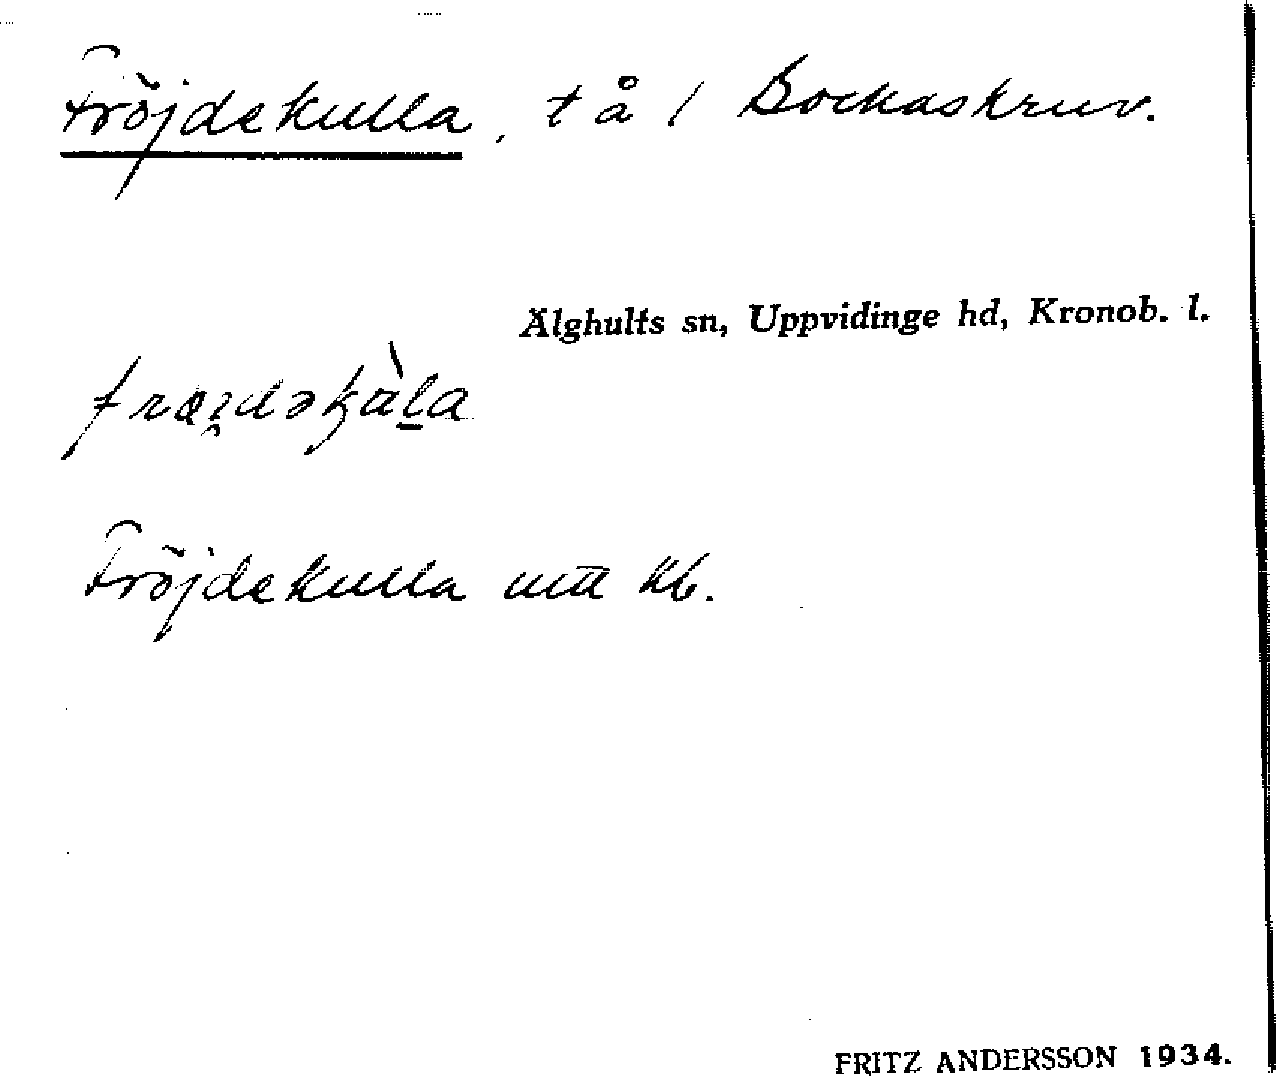 Fröjdekulla, t å 1 Bockaskruv.
Älghults sn, Uppvidinge hd, Kronob. l.
Fröjdekulla kb.
FRITZ ANDERSSON 1934.